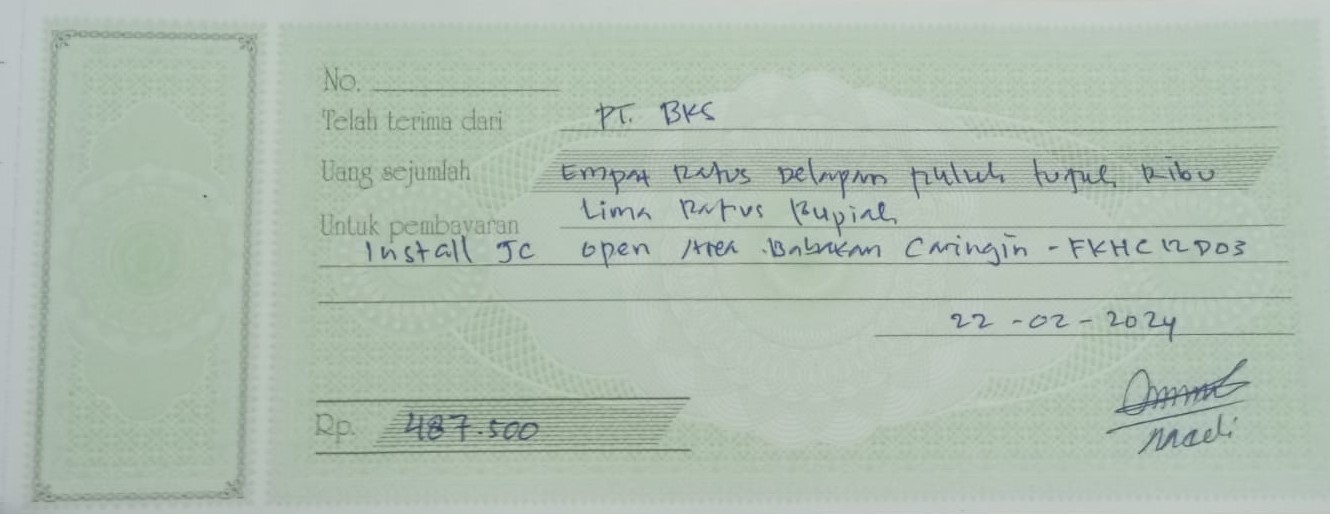 No.
Telah terima dari PT. BKS
Uang sejumlah Empat Ratus Delapan puluh tujuh Ribu
Lima Ratus Rupiah
Untuk pembayaran
Install JC open Area Babakan Caringin - FKHC12D03
22-02-2024
Rp. 487.500
Maeli